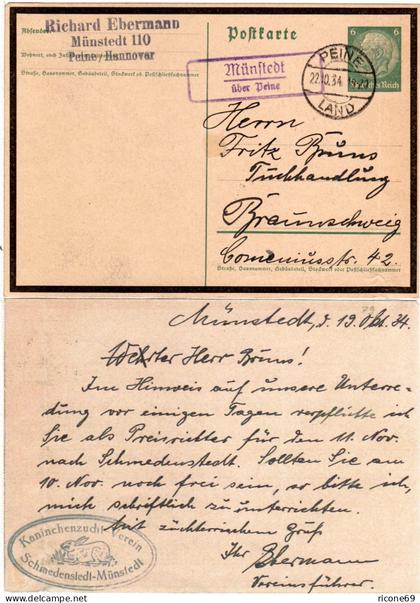 Absender:
Richard Ebermann
Münstedt 110
Peine / Hannover
Wohnort, auch Zustell-
Straße, Hausnummer, Gebäudeteil, Stockwerk od. Postschließfachnummer
Postkarte
Münstedt
über Peine
PEINE
22.10.34
LAND
6 6
Deutsches Reich
Herrn
Fritz Bruns
Tuchhandlung
Braunschweig
Comeniusstr. 42.
Straße, Hausnummer, Gebäudeteil, Stockwerk oder Postschließfachnummer
Münstedt, d. 19. Okt. 34.
Werter Herr Bruns!
Im Hinweis auf unsere Unterre-
dung vor einigen Tagen verpflichte ich
Sie als Preisrichter für den 11. Nov.
nach Schmedenstedt. Sollten Sie am
10. Nov. noch frei sein, so bitte ich,
mich schriftlich zu unterrichten.
Mit züchterischem Gruß
Ihr Ebermann
Vereinsführer.
Kaninchenzucht-Verein
Schmedenstedt-Münstedt
© ricone69